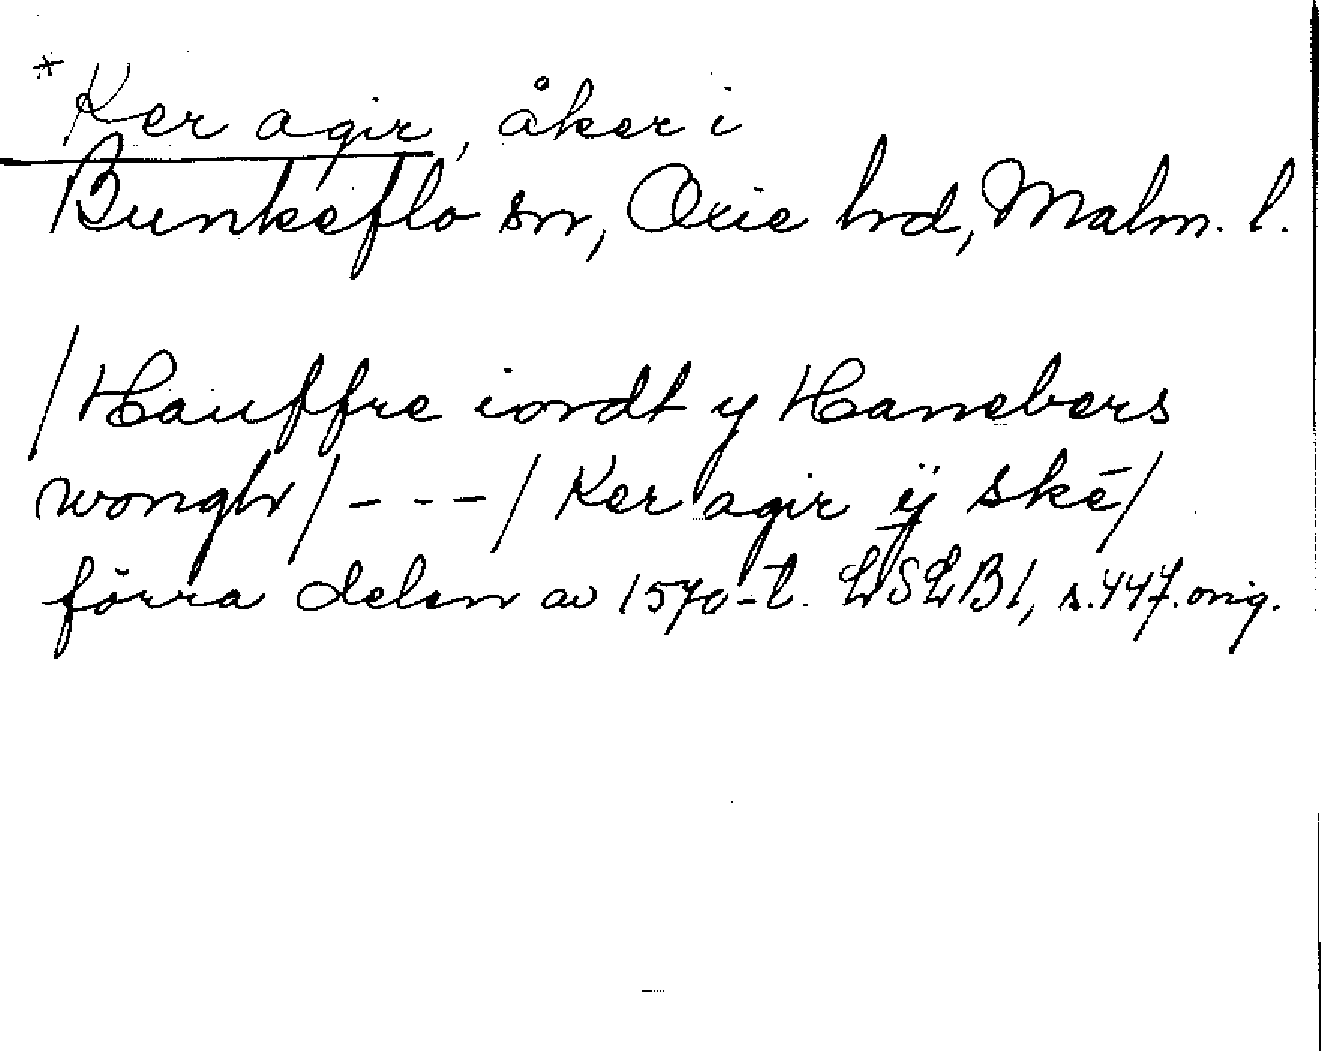 *Ker agir, åker i
Bunkeflo sn, Oxie hd, Malm. l.
/Hauffre iordt y Hanebers
wongh/---/ Ker agir ÿ skē/
förra delen av 1570-t. LSLB1, s.447. orig.